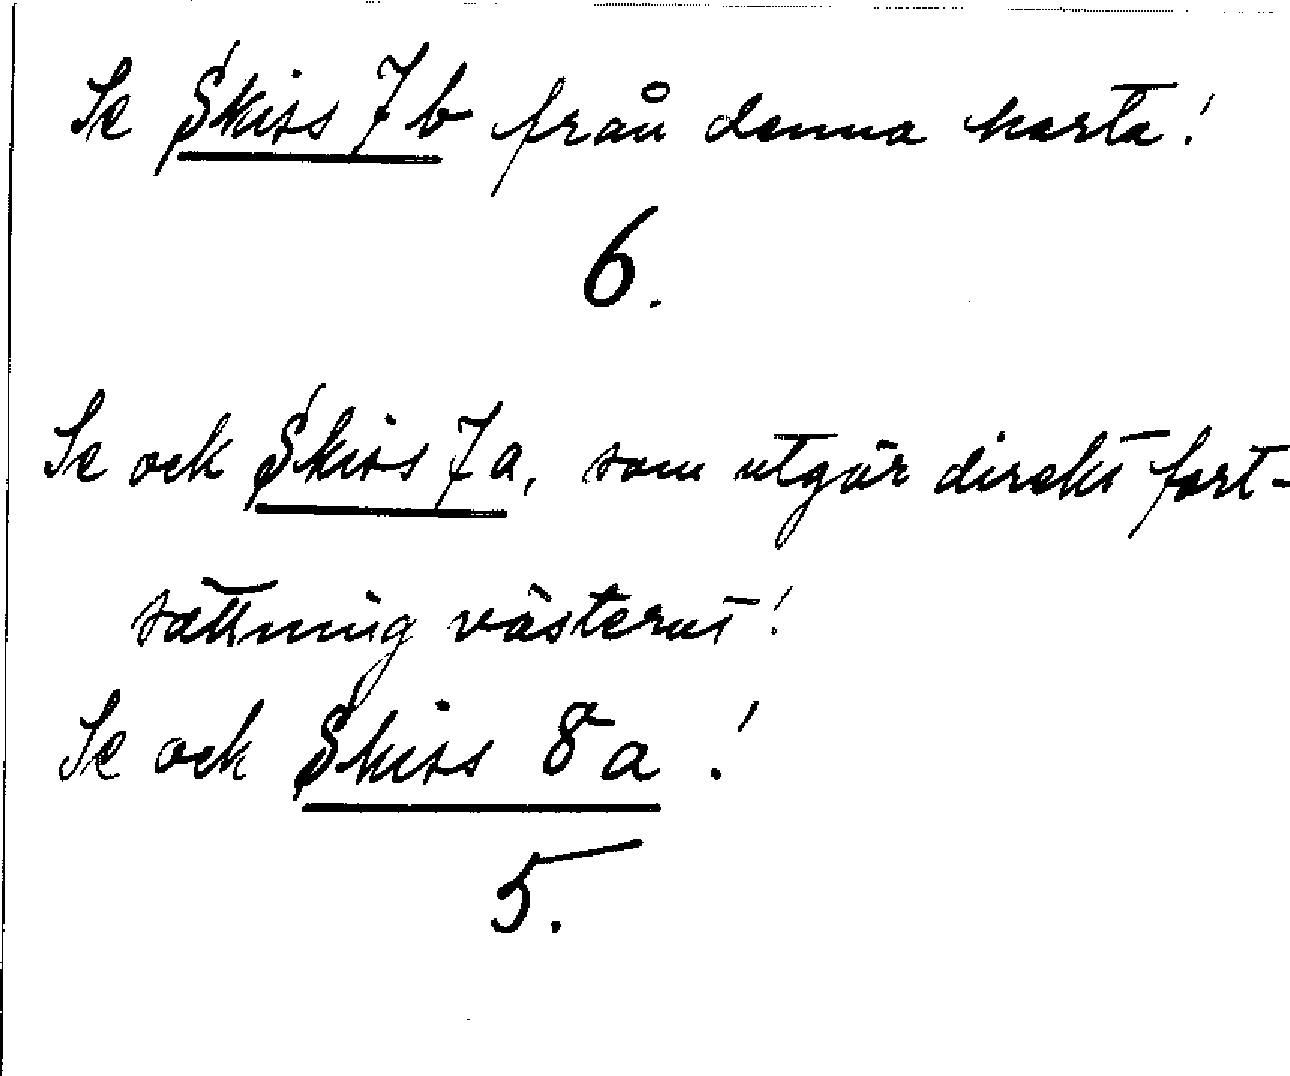 Se Skiss 7b från denna karta!
6.
Se ock Skiss 7a, som utgör direkt fort-
sättning västerut!
Se ock Skiss 8a !
5.